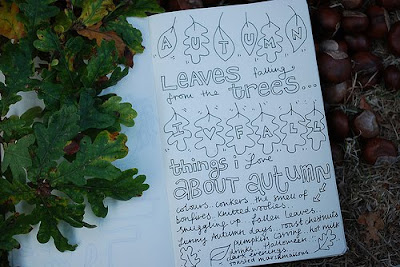 AUTUMN
LEAVES falling
from the TREES...
I ♥ FALL
things i love
ABOUT autumn
colours.. conkers.. the smell of
bonfires.. knitted woolies..
snuggling up.. fallen leaves..
sunny Autumn days.. roast chestnuts
pumpkin carving.. hot milk
drinks.. Halloween..
dark evenings..
toasted marshmallows